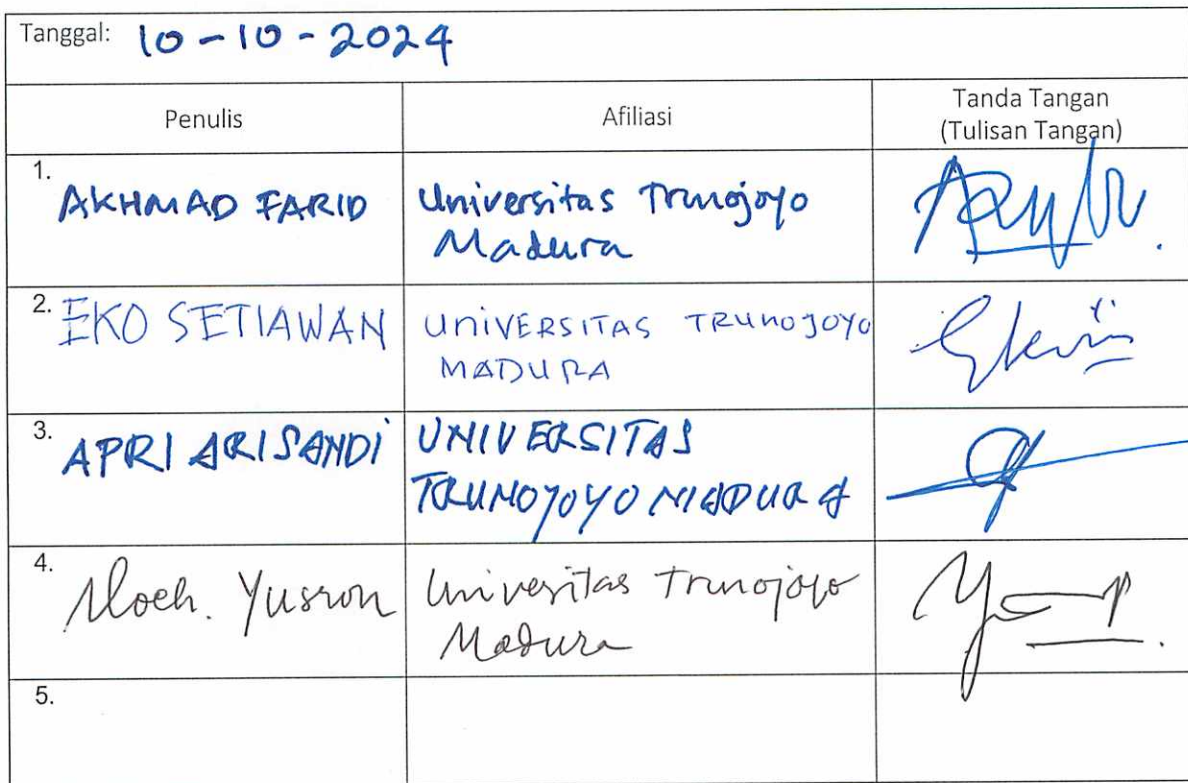 Tanggal: 10-10-2024
Penulis Afiliasi Tanda Tangan
(Tulisan Tangan)
1.
AKHMAD FARID Universitas Trunojoyo
Madura
2. EKO SETIAWAN UNIVERSITAS TRUNOJOYO
MADURA
3. APRI ARISANDI UNIVERSITAS
TRUNOJOYO MADURA
4. Moch. Yusron Univesitas Trunojoyo
Madura
5.